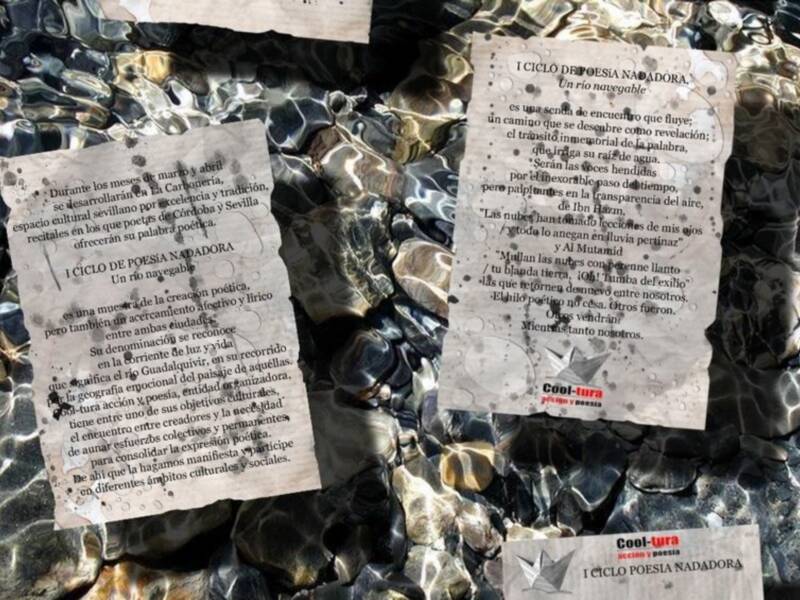 Durante los meses de marzo y abril
se desarrollarán en La Carbonería,
espacio cultural sevillano por excelencia y tradición,
recitales en los que poetas de Córdoba y Sevilla
ofrecerán su palabra poética.
I CICLO DE POESÍA NADADORA
Un río navegable
es una muestra de la creación poética,
pero también un acercamiento afectivo y lírico
entre ambas ciudades.
Su denominación se reconoce
en la corriente de luz y vida
que significa el río Guadalquivir, en su recorrido
por la geografía emocional del paisaje de aquéllas.
Cool-tura acción y poesía, entidad organizadora,
tiene entre uno de sus objetivos culturales,
el encuentro entre creadores y la necesidad
de aunar esfuerzos colectivos y permanentes,
para consolidar la expresión poética.
De ahí que la hagamos manifiesta y partícipe
en diferentes ámbitos culturales y sociales.
I CICLO DE POESíA NADADORA,
Un río navegable
es una senda de encuentro que fluye;
un camino que se descubre como revelación;
el tránsito inmemorial de la palabra,
que irriga su raíz de agua.
Serán las voces hendidas
por el inexorable paso del tiempo,
pero palpitantes en la transparencia del aire,
de Ibn Hazm,
"Las nubes han tomado lecciones de mis ojos
/ y todo lo anegan en lluvia pertinaz"
y Al Mutamid
"Mullan las nubes con perenne llanto
/ tu blanda tierra, ¡Oh! Tumba del exilio"
las que retornen desnuevo entre nosotros.
El hilo poético no cesa. Otros fueron.
Otros vendrán.
Mientras tanto nosotros.
Cool-tura
acción y poesía
Cool-tura
acción y poesía
I CICLO POESIA NADADORA